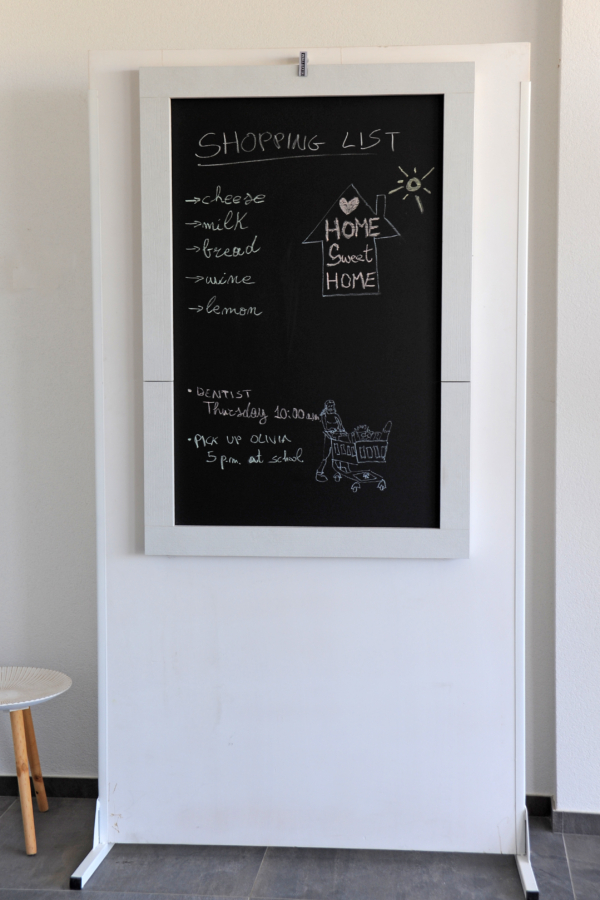 SHOPPING LIST
→cheese
→milk
→bread
→wine
→lemon
HOME
Sweet
HOME
• DENTIST
Thursday 10:00 a.m
• PICK UP OLIVIA
5 p.m. at school